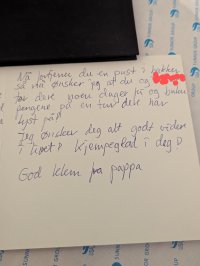 Nå fortjener du en pust i bakken
så da ønsker jeg at du og
tar dere noen dager fri og bruker
pengene på en tur dere har
lyst på!
Jeg ønsker deg alt godt videre
i livet! Kjempeglad i deg!
God klem fra pappa
SUNNIK GROUP